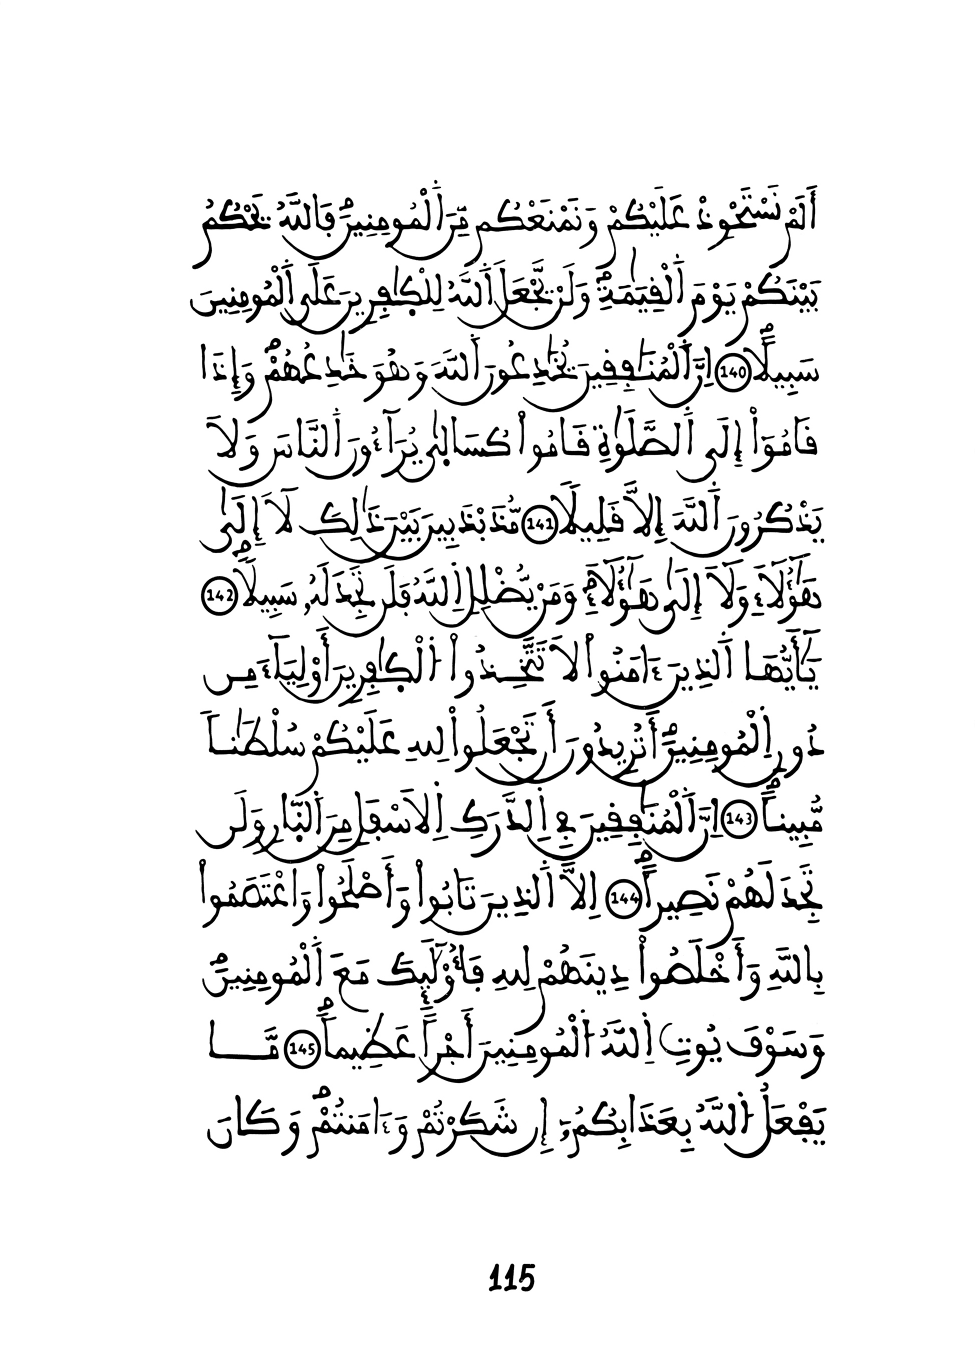 أَلَمْ نَسْتَحْوِذْ عَلَيْكُمْ وَنَمْنَعْكُم مِّنَ ٱلْمُومِنِينَۖ فَاللَّهُ يَحْكُمُ
بَيْنَكُمْ يَوْمَ ٱلْقِيَٰمَةِۖ وَلَنْ يَّجْعَلَ ٱللَّهُ لِلْكَٰفِرِينَ عَلَى ٱلْمُومِنِينَ
سَبِيلًاۖ 140 إِنَّ ٱلْمُنَٰفِقِينَ يُخَٰدِعُونَ ٱللَّهَ وَهُوَ خَٰدِعُهُمْۖ وَإِذَا
قَامُوٓاْ إِلَى ٱلصَّلَوٰةِ قَامُواْ كُسَالَىٰ يُرَآءُونَ ٱلنَّاسَ وَلَا
يَذْكُرُونَ ٱللَّهَ إِلَّا قَلِيلًا 141 مُّذَبْذَبِينَ بَيْنَ ذَٰلِكَ لَآ إِلَىٰ
هَٰٓؤُلَآءِ وَلَآ إِلَىٰ هَٰٓؤُلَآءِۖ وَمَنْ يُّضْلِلِ ٱللَّهُ فَلَن تَجِدَ لَهُۥ سَبِيلًاۖ 142
يَٰٓأَيُّهَا ٱلذِينَ ءَامَنُواْ لَا تَتَّخِذُواْ ٱلْكَٰفِرِينَ أَوْلِيَآءَ مِن
دُونِ ٱلْمُومِنِينَۖ أَتُرِيدُونَ أَن تَجْعَلُواْ لِلهِ عَلَيْكُمْ سُلْطَٰناً
مُّبِيناًۖ 143 إِنَّ ٱلْمُنَٰفِقِينَ فِي ٱلدَّرَكِ ٱلَاسْفَلِ مِنَ ٱلنَّارِ وَلَن
تَجِدَ لَهُمْ نَصِيراًۖ 144 إِلَّا ٱلذِينَ تَابُواْ وَأَصْلَحُواْ وَاعْتَصَمُواْ
بِاللَّهِ وَأَخْلَصُواْ دِينَهُمْ لِلهِ فَأُوْلَٰٓئِكَ مَعَ ٱلْمُومِنِينَۖ
وَسَوْفَ يُوتِ ٱللَّهُ ٱلْمُومِنِينَ أَجْراً عَظِيماًۖ 145 مَّا
يَفْعَلُ ٱللَّهُ بِعَذَابِكُمُۥٓ إِن شَكَرْتُمْ وَءَامَنتُمْۖ وَكَانَ
115